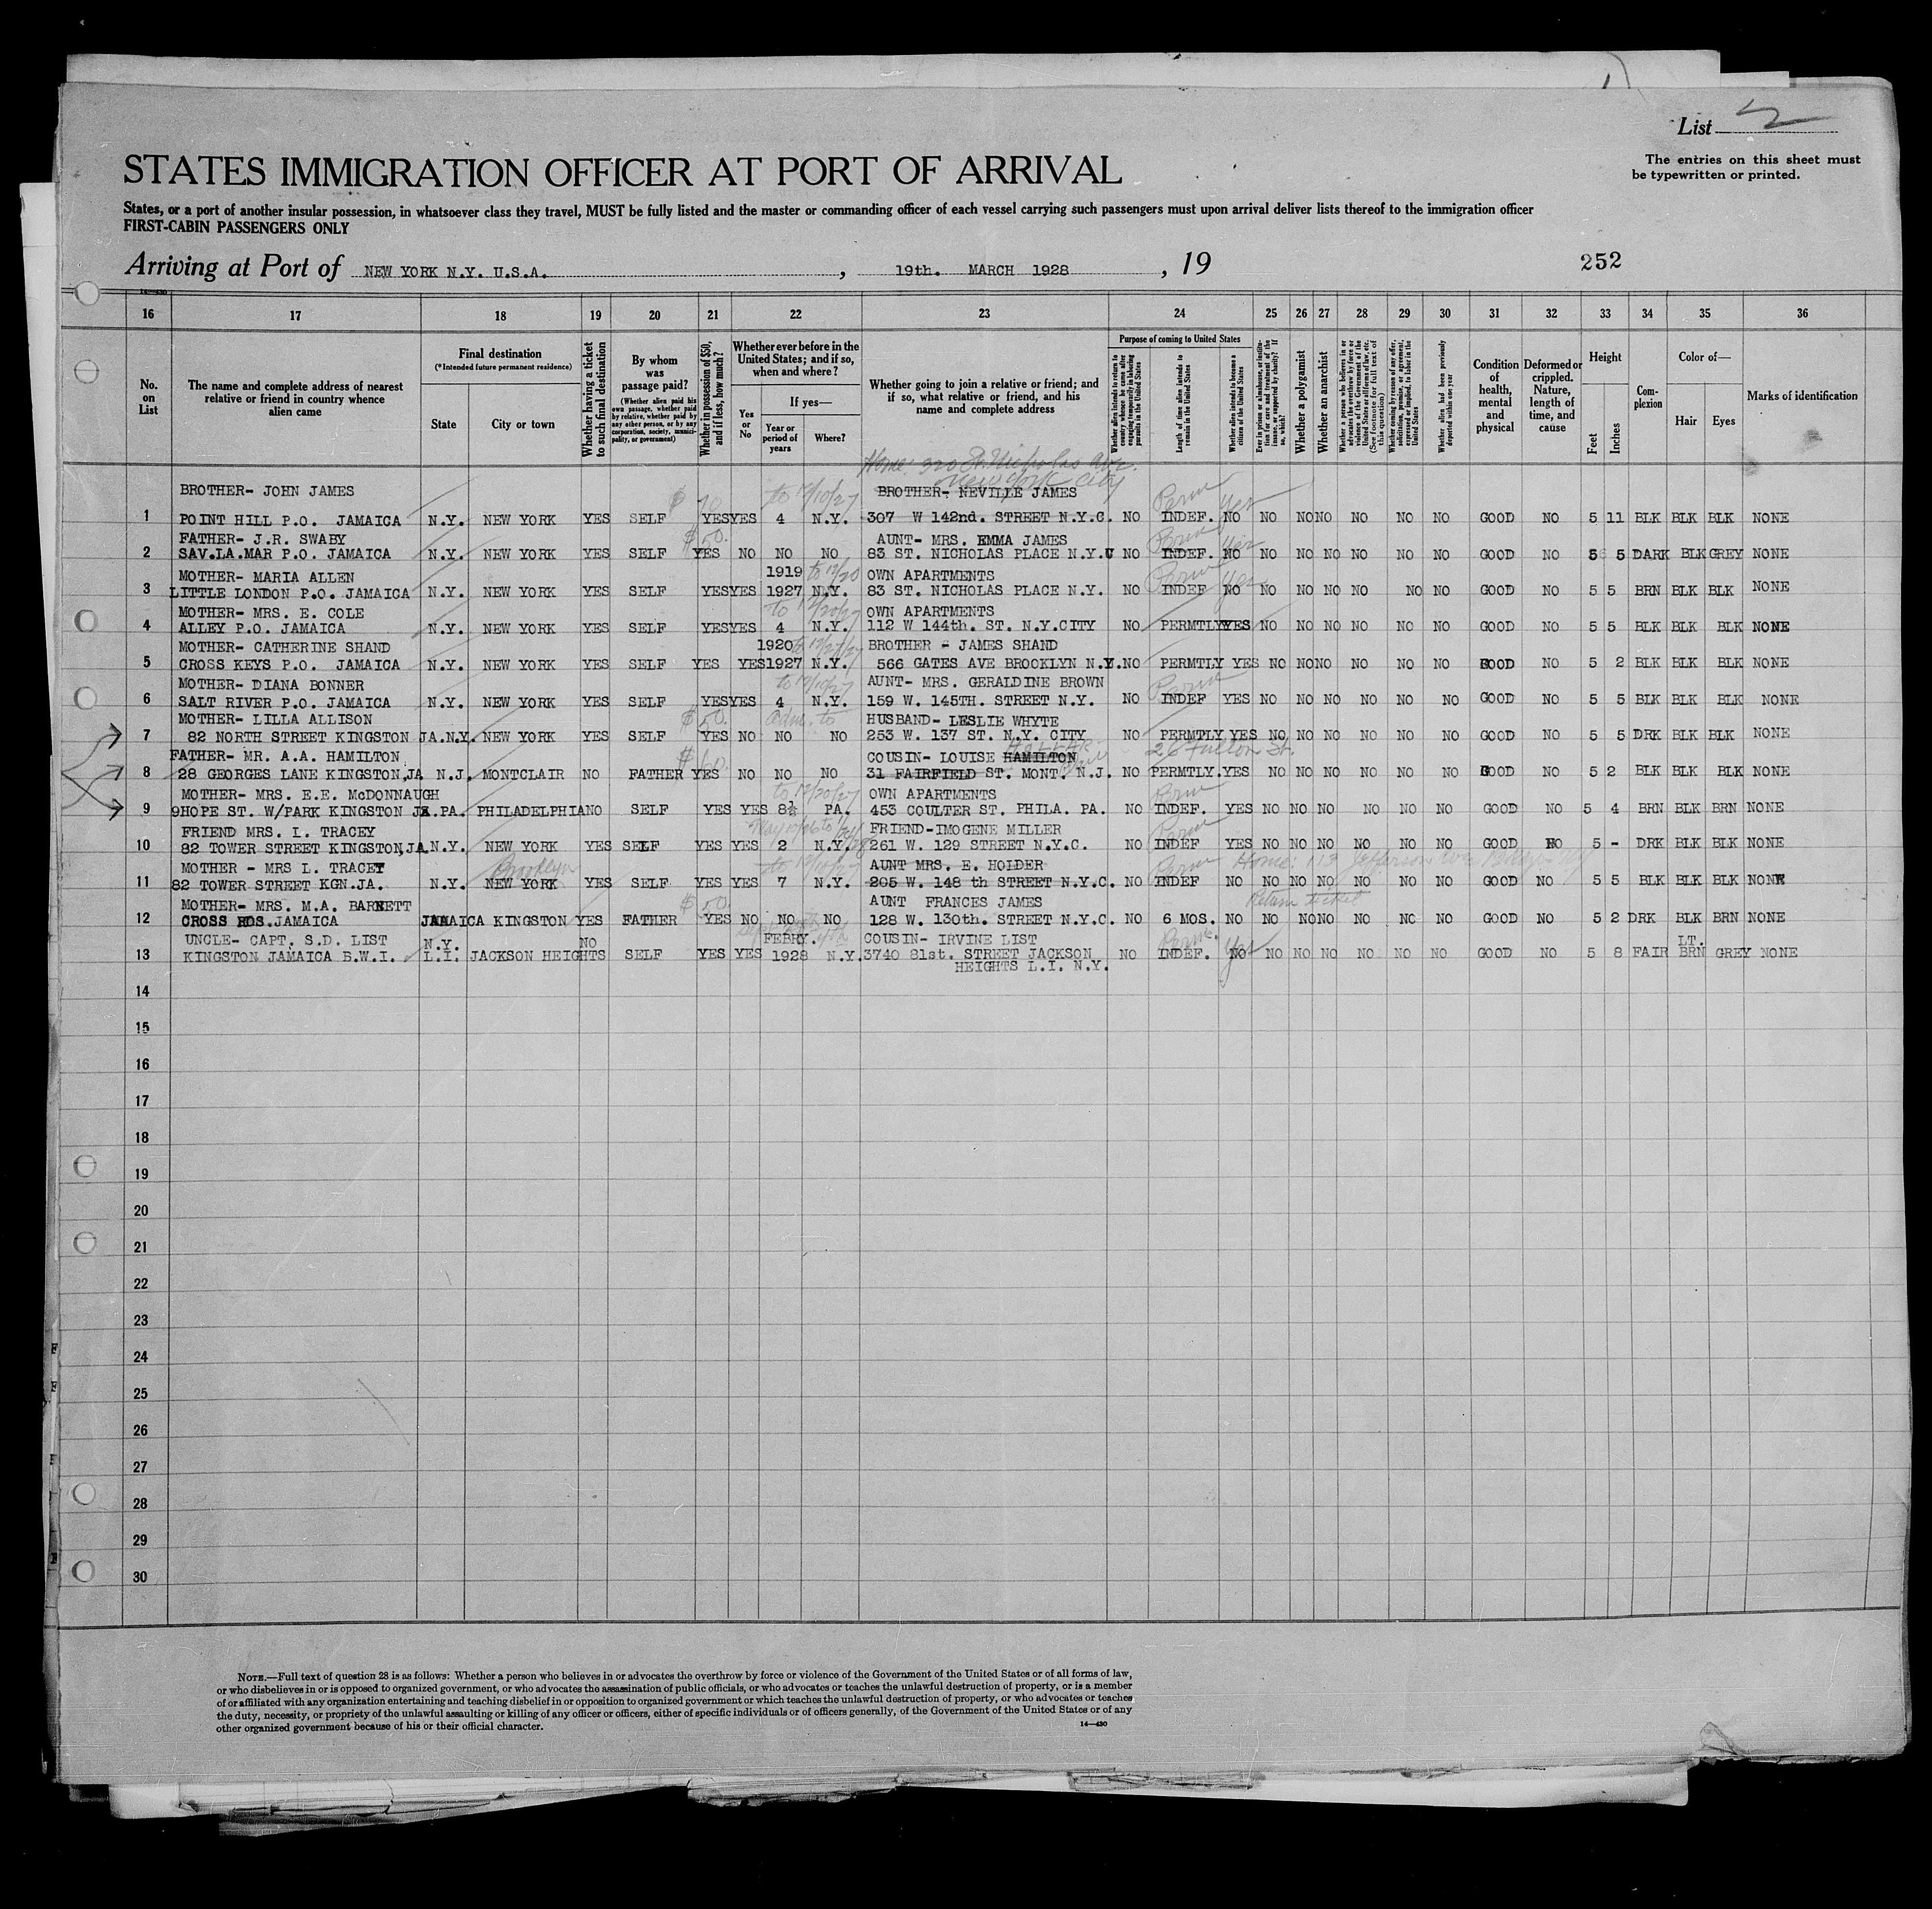 List 2
The entries on this sheet must
be typewritten or printed.
STATES IMMIGRATION OFFICER AT PORT OF ARRIVAL
States, or a port of another insular possession, in whatsoever class they travel, MUST be fully listed and the master or commanding officer of each vessel carrying such passengers must upon arrival deliver lists thereof to the immigration officer
FIRST-CABIN PASSENGERS ONLY
Arriving at Port of NEW YORK N.Y. U.S.A. , 19th. MARCH 1928 , 19 252
14-430
16 17 18 19 20 21 22 23 24 25 26 27 28 29 30 31 32 33 34 35 36
No. on List
The name and complete address of nearest relative or friend in country whence alien came
Final destination
(*Intended future permanent residence)
State
City or town
Whether having a ticket to such final destination
By whom was passage paid?
(Whether alien paid his own passage, whether paid by relative, whether paid by any other person, or by any corporation, society, municipality, or government)
Whether in possession of $50, and if less, how much?
Whether ever before in the United States; and if so, when and where?
Yes or No
If yes—
Year or period of years
Where?
Whether going to join a relative or friend; and if so, what relative or friend, and his name and complete address
Purpose of coming to United States
Whether alien intends to return to country whence he came after engaging temporarily in laboring pursuits in the United States
Length of time alien intends to remain in the United States
Whether alien intends to become a citizen of the United States
Ever in prison or almshouse, or institution for care and treatment of the insane, or supported by charity? If so, which?
Whether a polygamist
Whether an anarchist
Whether a person who believes in or advocates the overthrow by force or violence of the Government of the United States or all forms of law, etc. (See footnote for full text of this question)
Whether coming by reason of any offer, solicitation, promise, or agreement, expressed or implied, to labor in the United States
Whether alien had been previously deported within one year
Condition of health, mental and physical
Deformed or crippled. Nature, length of time, and cause
Height
Feet
Inches
Complexion
Color of—
Hair
Eyes
Marks of identification
Home: 320 St. Nicholas Ave.
New York City
BROTHER- JOHN JAMES $ 70 to 12/10/27 BROTHER- NEVILLE JAMES Perm Yes
1 POINT HILL P.O. JAMAICA N.Y. NEW YORK YES SELF YES YES 4 N.Y. 307 W 142nd. STREET N.Y.C. NO INDEF. NO NO NO NO NO NO NO GOOD NO 5 11 BLK BLK BLK NONE
FATHER- J.R. SWABY $50. AUNT- MRS. EMMA JAMES Perm Yes
2 SAV.LA.MAR P.O. JAMAICA N.Y. NEW YORK YES SELF YES NO NO NO 83 ST. NICHOLAS PLACE N.Y.C NO INDEF. NO NO NO NO NO NO NO GOOD NO 5 5 DARK BLK GREY NONE
MOTHER- MARIA ALLEN 1919 to 12/20 OWN APARTMENTS Perm Yes
3 LITTLE LONDON P.O. JAMAICA N.Y. NEW YORK YES SELF YES YES 1927 N.Y. 83 ST. NICHOLAS PLACE N.Y. NO INDEF NO NO NO NO NO NO NO GOOD NO 5 5 BRN BLK BLK NONE
MOTHER- MRS. E. COLE to 12/20/27 OWN APARTMENTS
4 ALLEY P.O. JAMAICA N.Y. NEW YORK YES SELF YES YES 4 N.Y. 112 W 144th. ST. N.Y.CITY NO PERMTLY YES NO NO NO NO NO NO GOOD NO 5 5 BLK BLK BLK NONE
MOTHER- CATHERINE SHAND 1920 to 12/27/27 BROTHER - JAMES SHAND
5 CROSS KEYS P.O. JAMAICA N.Y. NEW YORK YES SELF YES YES 1927 N.Y. 566 GATES AVE BROOKLYN N.Y. NO PERMTLY YES NO NO NO NO NO NO GOOD NO 5 2 BLK BLK BLK NONE
MOTHER- DIANA BONNER to 12/10/27 AUNT- MRS. GERALDINE BROWN Perm
6 SALT RIVER P.O. JAMAICA N.Y. NEW YORK YES SELF YES YES 4 N.Y. 159 W. 145TH. STREET N.Y. NO INDEF YES NO NO NO NO NO NO GOOD NO 5 5 BLK BLK BLK NONE
MOTHER- LILLA ALLISON $50. adm. to HUSBAND- LESLIE WHYTE
7 82 NORTH STREET KINGSTON JA. N.Y. NEW YORK YES SELF YES NO NO NO 253 W. 137 ST. N.Y. CITY NO PERMTLY YES NO NO NO NO NO NO GOOD NO 5 5 DRK BLK BLK NONE
FATHER- MR. A.A. HAMILTON $60. COUSIN- LOUISE HAMILTON 26 Fullon St.
8 28 GEORGES LANE KINGSTON,JA N.J. MONTCLAIR NO FATHER YES NO NO NO 31 FAIRFIELD ST. MONT. N.J. NO PERMTLY. YES NO NO NO NO NO NO GOOD NO 5 2 BLK BLK BLK NONE
MOTHER- MRS. E.E. McDONNAUGH to 12/20/27 OWN APARTMENTS Perm
9 9HOPE ST. W/PARK KINGSTON JA. PA. PHILADELPHIA NO SELF YES YES 8½ PA. 453 COULTER ST. PHILA. PA. NO INDEF. YES NO NO NO NO NO NO GOOD NO 5 4 BRN BLK BRN NONE
FRIEND MRS. I. TRACEY May 10/26 to FRIEND-IMOGENE MILLER Perm
10 82 TOWER STREET KINGSTON,JA. N.Y. NEW YORK YES SELF YES YES 2 N.Y. 261 W. 129 STREET N.Y.C. NO INDEF YES NO NO NO NO NO NO GOOD NO 5 - DRK BLK BLK NONE
MOTHER - MRS L. TRACEY Brooklyn to 12/10/27 AUNT MRS. E. HOLDER Perm Home: 113 Jefferson Ave
11 82 TOWER STREET KGN.JA. N.Y. NEW YORK YES SELF YES YES 7 N.Y. 205 W. 148 th STREET N.Y.C. NO INDEF NO NO NO NO NO NO NO GOOD NO 5 5 BLK BLK BLK NONE
MOTHER- MRS. M.A. BARNETT $50. AUNT FRANCES JAMES Return ticket
12 CROSS RDS.JAMAICA JAMAICA KINGSTON YES FATHER YES NO NO NO 128 W. 130th. STREET N.Y.C. NO 6 MOS. NO NO NO NO NO NO NO GOOD NO 5 2 DRK BLK BRN NONE
UNCLE- CAPT. S.D. LIST N.Y. NO FEBRY. COUSIN- IRVINE LIST Perm. Yes LT.
13 KINGSTON JAMAICA B.W.I. L.I. JACKSON HEIGHTS SELF YES YES 1928 N.Y. 3740 81st. STREET JACKSON NO INDEF. NO NO NO NO NO NO NO GOOD NO 5 8 FAIR BRN GREY NONE
HEIGHTS L.I. N.Y.
14
15
16
17
18
19
20
21
22
23
24
25
26
27
28
29
30
NOTE.—Full text of question 28 is as follows: Whether a person who believes in or advocates the overthrow by force or violence of the Government of the United States or of all forms of law,
or who disbelieves in or is opposed to organized government, or who advocates the assassination of public officials, or who advocates or teaches the unlawful destruction of property, or is a member
of or affiliated with any organization entertaining and teaching disbelief in or opposition to organized government or which teaches the unlawful destruction of property, or who advocates or teaches
the duty, necessity, or propriety of the unlawful assaulting or killing of any officer or officers, either of specific individuals or of officers generally, of the Government of the United States or of any
other organized government because of his or their official character.
14—430